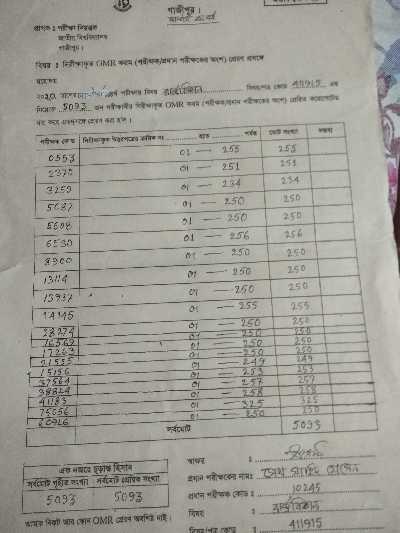 গাজীপুর।
প্রাপক : পরীক্ষা নিয়ন্ত্রক
জাতীয় বিশ্ববিদ্যালয়
গাজীপুর।
বিষয় : নিরীক্ষাকৃত OMR ফরম (পরীক্ষক/প্রধান পরীক্ষকের অংশ) প্রেরণ প্রসঙ্গে
মহোদয়
পরীক্ষার বিষয় রাষ্ট্রবিজ্ঞান বিষয়/পত্র কোড 411915 এর
নিম্নোক্ত 5093 জন পরীক্ষার্থীর নিরীক্ষাকৃত OMR ফরম (পরীক্ষক/প্রধান পরীক্ষকের অংশ)
পরীক্ষক কোড নিরীক্ষাকৃত উত্তরপত্রের ক্রমিক নং হতে পর্যন্ত মোট সংখ্যা মন্তব্য
0553 01 — 255 255
2370 01 — 251 251
3259 01 — 234 234
5037 01 — 250 250
5608 01 — 250 250
6530 01 — 256 256
8900 01 — 250 250
13114 01 — 250 250
13937 01 — 250 250
14145 01 — 255 255
01 — 250 250
16569 01 — 250 250
17263 01 — 250 250
21555 01 — 249 249
15156 01 — 253 253
37564 01 — 257 257
38824 01 — 258 258
41183 01 — 325 325
75056 01 — 250 250
20926
সর্বমোট 5093
স্বাক্ষর :
এক নজরে চূড়ান্ত হিসাব
প্রধান পরীক্ষকের নামঃ
সর্বমোট গৃহীত সংখ্যা সর্বমোট প্রেরিত সংখ্যা
প্রধান পরীক্ষক কোড : 10245
5093 5093
বিষয় : রাষ্ট্রবিজ্ঞান
আমার নিকট আর কোন OMR প্রেরণ অবশিষ্ট নাই।
বিষয়/পত্র কোড : 411915